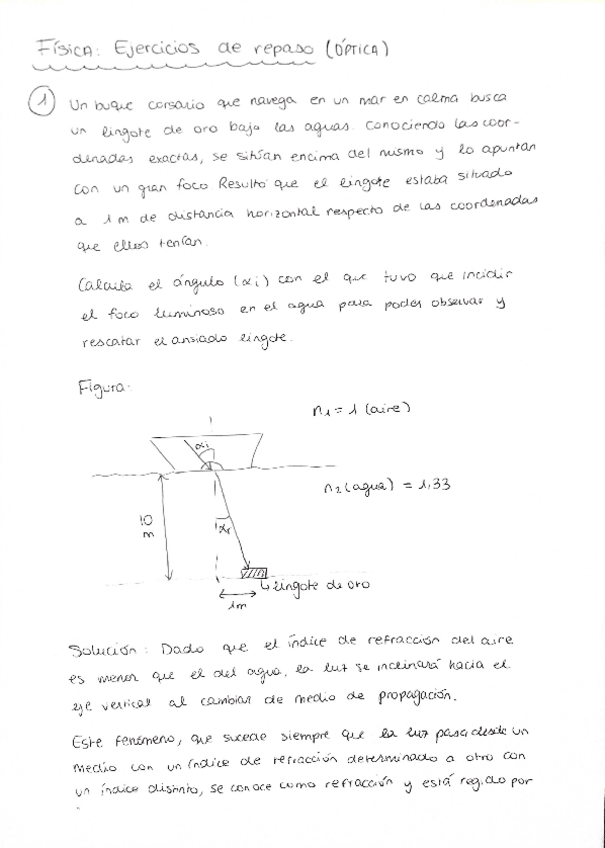 Física: Ejercicios de repaso (ÓPTICA)
1 Un buque corsario que navega en un mar en calma busca
un lingote de oro bajo las aguas. Conociendo las coor-
denadas exactas, se sitúan encima del mismo y lo apuntan
con un gran foco. Resultó que el lingote estaba situado
a 1m de distancia horizontal respecto de las coordenadas
que ellos tenían.
Calcula el ángulo (αi) con el que tuvo que incidir
el foco luminoso en el agua para poder observar y
rescatar el ansiado lingote.
Figura:
n1 = 1 (aire)
αi
n2 (agua) = 1,33
10
m
αr
lingote de oro
1m
Solución: Dado que el índice de refracción del aire
es menor que el del agua, la luz se inclinará hacia el
eje vertical al cambiar de medio de propagación.
Este fenómeno, que sucede siempre que la luz pasa desde un
medio con un índice de refracción determinado a otro con
un índice distinto, se conoce como refracción y está regido por